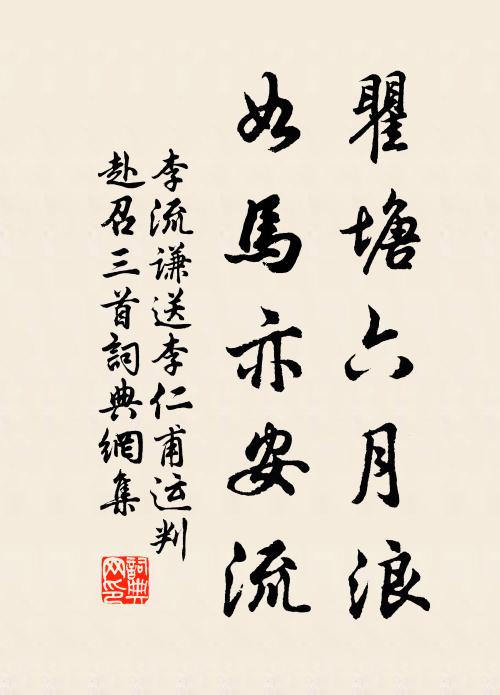 瞿塘六月浪
如馬亦安流
李流謙送李仁甫运判
赴召三首詞典網集
詞典
网印